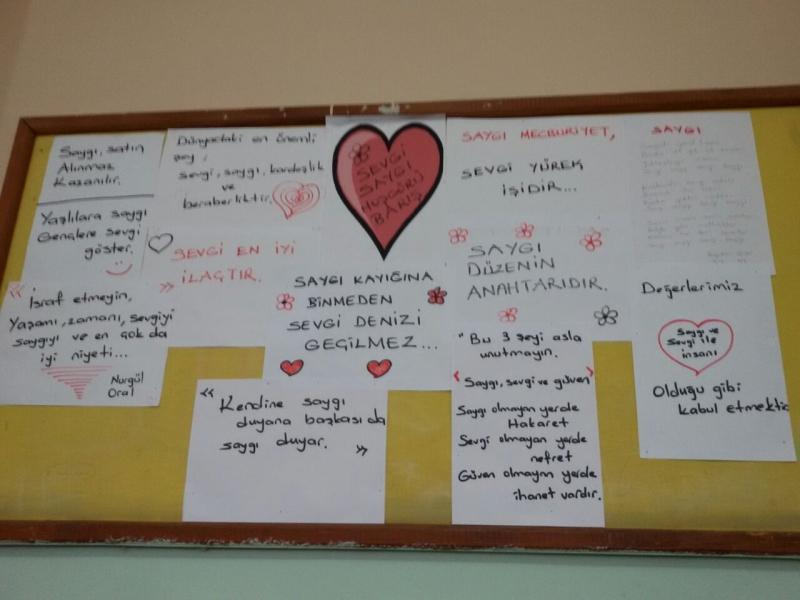 Saygı, satın
Alınmaz
Kazanılır.
Yaşlılara saygı
Gençlere sevgi
göster.
"
İsraf etmeyin,
Yaşamı, zamanı, sevgiyi
saygıyı ve en çok da
iyi niyeti...
"
Nurgül
Oral
Dünyadaki en önemli
şey;
sevgi, saygı, kardeşlik
ve
beraberliktir.
SEVGİ EN İYİ
İLAÇTIR.
SEVGİ
SAYGI
HOŞGÖRÜ
BARIŞ
SAYGI KAYIĞINA
BİNMEDEN
SEVGİ DENİZİ
GEÇİLMEZ...
"
Kendine saygı
duyana başkası da
saygı duyar.
"
SAYGI MECBURİYET,
SEVGİ YÜREK
İŞİDİR...
SAYGI
DÜZENİN
ANAHTARIDIR.
"Bu 3 şeyi asla
unutmayın.
Saygı, sevgi ve güven"
Saygı olmayan yerde
Hakaret
Sevgi olmayan yerde
nefret
Güven olmayan yerde
ihanet vardır.
SAYGI
Değerlerimiz
Saygı ve
Sevgi ile
insanı
Olduğu gibi
kabul etmektir